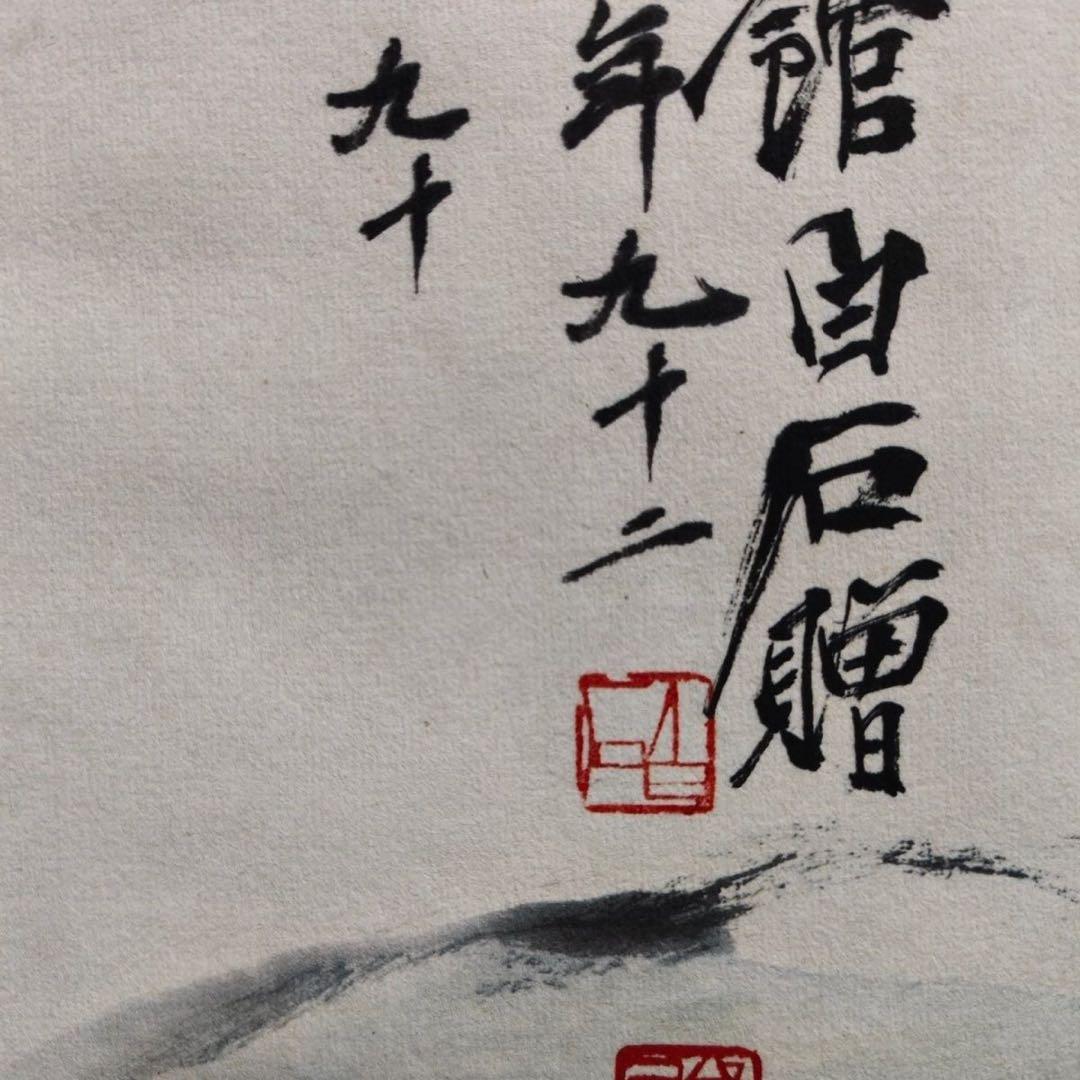 館白石贈
年九十二
九十